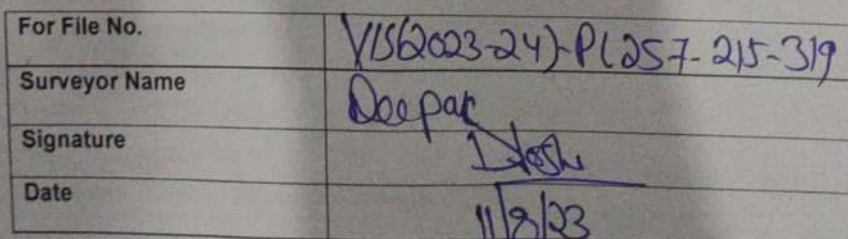 For File No. VIS(2023-24)-PL257-215-319
Surveyor Name Deepak
Signature Joshi
Date 11/8/23